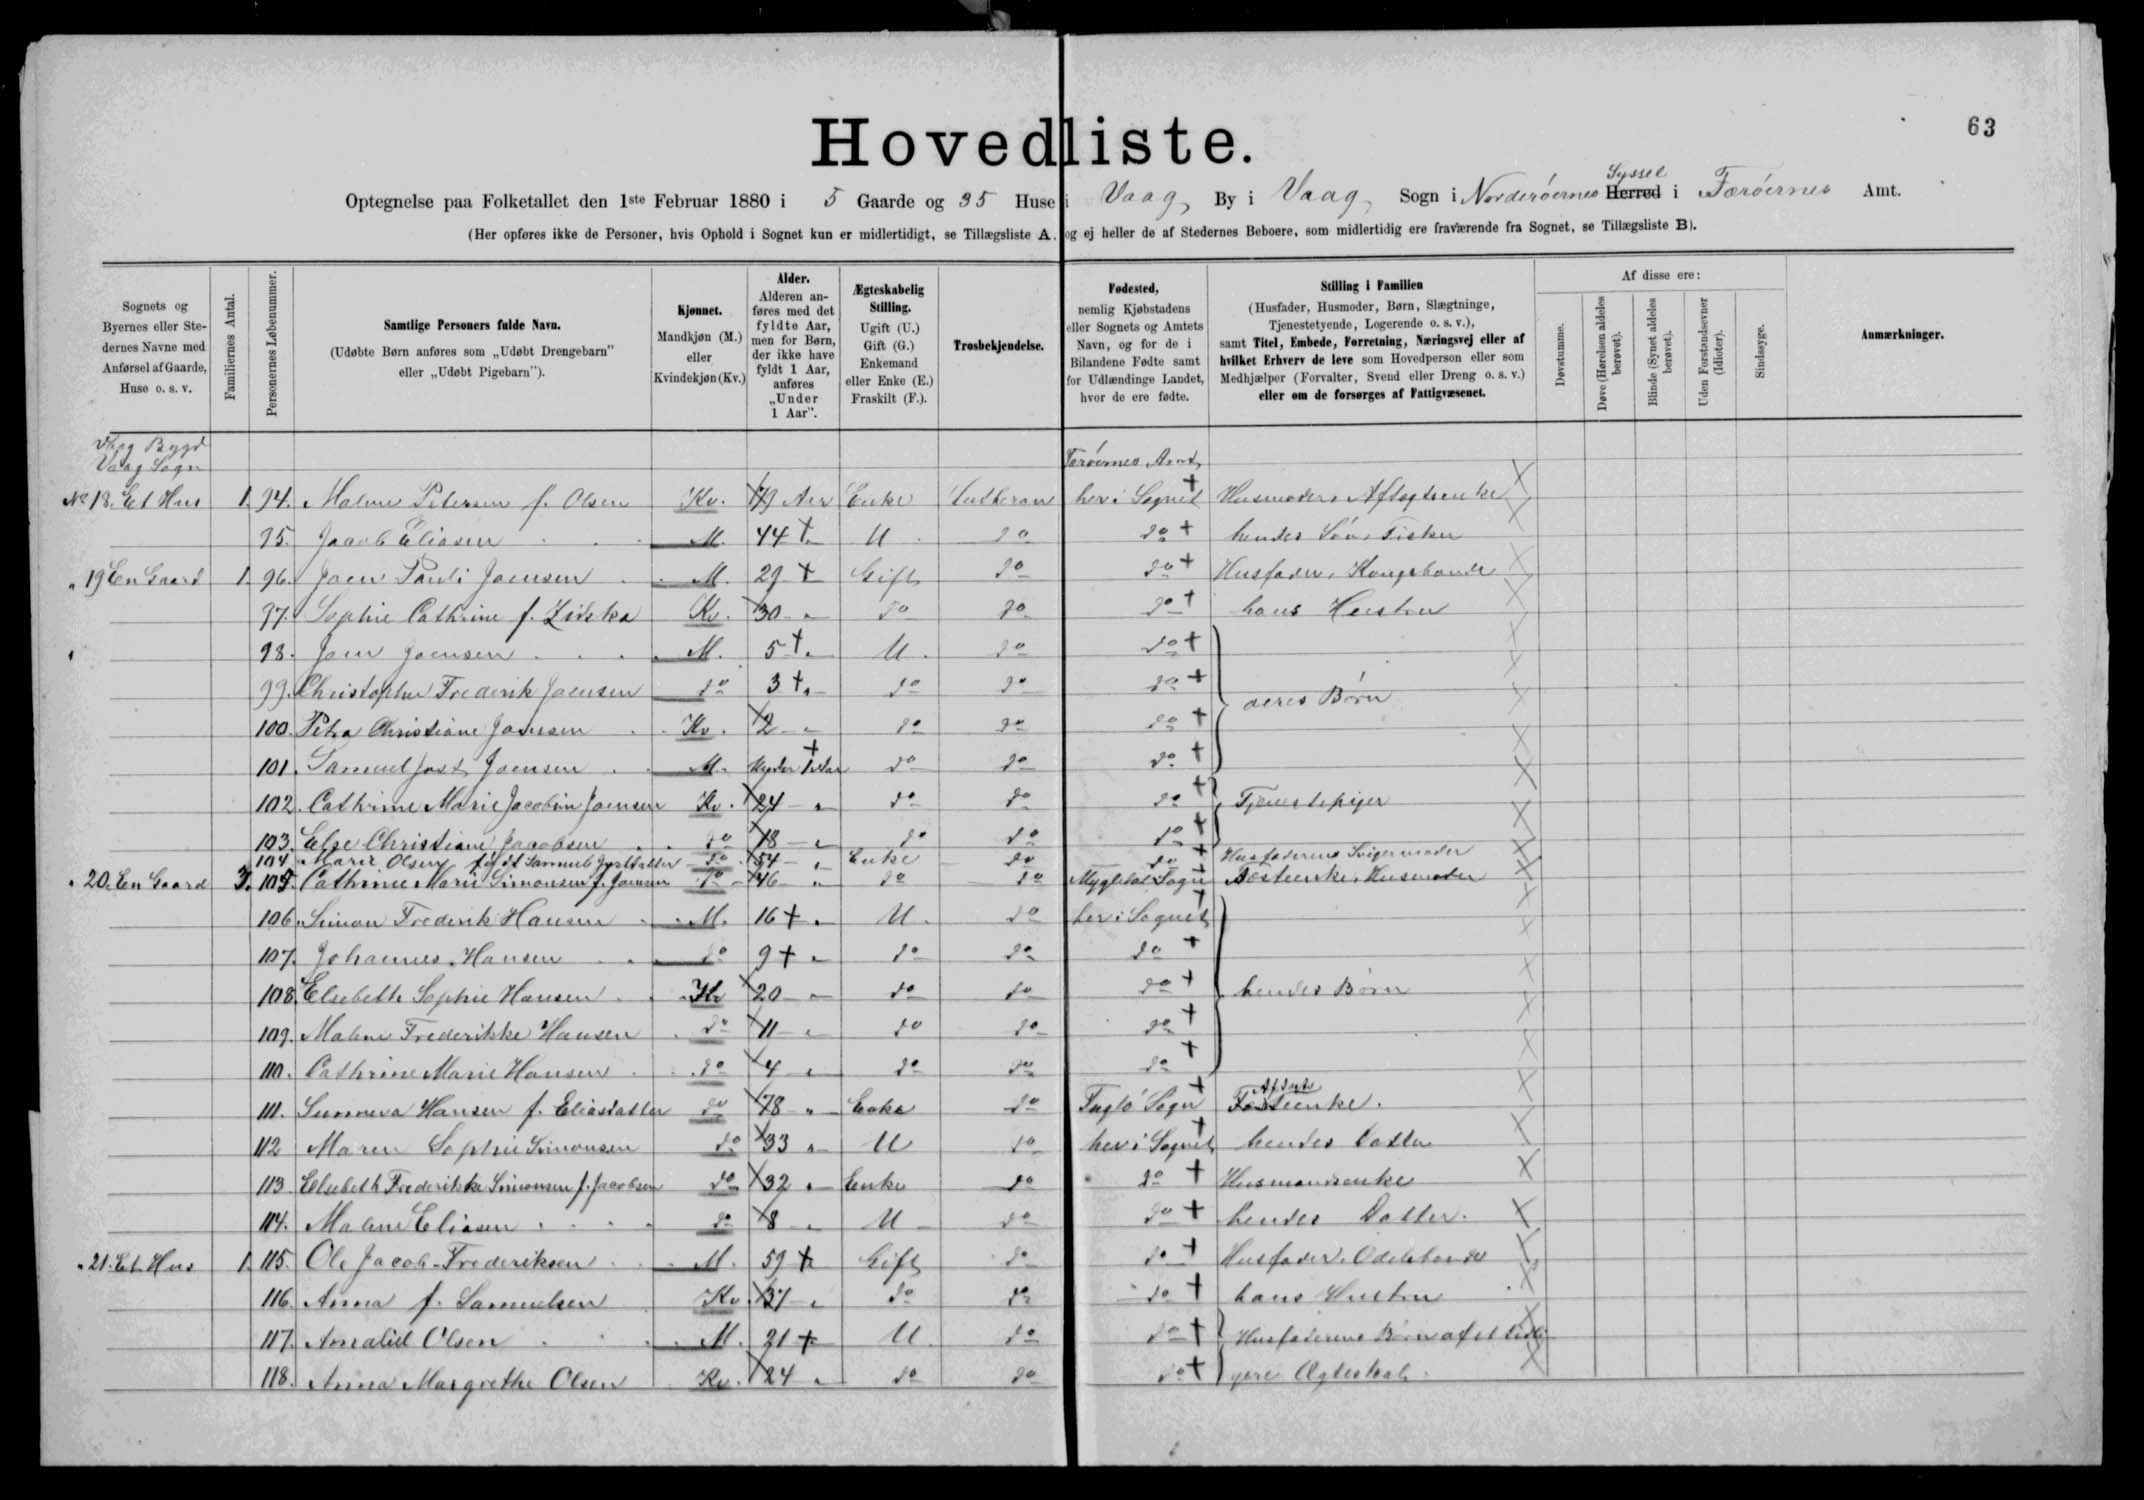 63
Hovedliste.
Optegnelse paa Folketallet den 1ste Februar 1880 i 5 Gaarde og 35 Huse i Vaag By i Vaag Sogn i Norderöernes Herred Syssel i Færöernes Amt.
(Her opføres ikke de Personer, hvis Ophold i Sognet kun er midlertidigt, se Tillægsliste A, og ej heller de af Stedernes Beboere, som midlertidig ere fraværende fra Sognet, se Tillægsliste B).
Sognets og Byernes eller Stedernes Navne med Anførsel af Gaarde, Huse o. s. v.
Familiernes Antal.
Personernes Løbenummer.
Samtlige Personers fulde Navn. (Udøbte Børn anføres som „Udøbt Drengebarn" eller „Udøbt Pigebarn").
Kjønnet. Mandkjøn (M.) eller Kvindekjøn (Kv.)
Alder. Alderen anføres med det fyldte Aar, men for Børn, der ikke have fyldt 1 Aar, anføres „Under 1 Aar".
Ægteskabelig Stilling. Ugift (U.) Gift (G.) Enkemand eller Enke (E.) Fraskilt (F.).
Trosbekjendelse.
Fødested, nemlig Kjøbstadens eller Sognets og Amtets Navn, og for de i Bilandene Fødte samt for Udlændinge Landet, hvor de ere fødte.
Stilling i Familien (Husfader, Husmoder, Børn, Slægtninge, Tjenestetyende, Logerende o. s. v.), samt Titel, Embede, Forretning, Næringsvej eller af hvilket Erhverv de leve som Hovedperson eller som Medhjælper (Forvalter, Svend eller Dreng o. s. v.) eller om de forsørges af Fattigvæsenet.
Af disse ere:
Døvstumme.
Døve (Hørelsen aldeles berøvet).
Blinde (Synet aldeles berøvet).
Uden Forstandsevner (Idioter).
Sindssyge.
Anmærkninger.
Vaag Bygd
Vaag Sogn Færöernes Amt
No 18. Et Hus 1. 94. Malene Petersen f. Olsen Kv. 79 Aar Enke Lutheran her i Sognet Husmoder, Aftægtsenke
95. Jacob Eliasen M. 44 U do do hendes Sön, Fisker
" 19 En Gaard 1. 96. Joen Pauli Joensen M. 29 Gift do do Husfader, Kongsbonde
97. Sophie Cathrine f. Zidska Kv. 30 " do do do hans Hustru
98. Joen Joensen M. 5 " U. do do
99. Christopher Frederik Joensen do 3 " do do do deres Börn
100. Petra Christiane Joensen Kv. 2 " do do do
101. Samuel Jost Joensen M. Under 1 Aar do do do
102. Cathrine Marie Jacobine Joensen Kv. 24 " do do do Tjenestepiger
103. Else Christiane Jacobsen do 18 " do do do
104 Maria Olsen født Samuel Jostdatter do 54 " Enke do do Husfaderens Svigermoder
" 20. En Gaard 3. 105. Cathrine Marie Simonsen f. Joensen do 46 " do do Mygledal Sogn Fæsteenke, Husmoder
106. Simon Frederik Hansen M. 16 " U. do her i Sognet
107. Johannes Hansen do 9 " do do do
108. Elsebeth Sophie Hansen Kv 20 " do do do hendes Börn
109. Malene Frederikke Hansen do 11 " do do do
110. Cathrine Marie Hansen do 4 " do do do
111. Sunneva Hansen f. Eliasdatter do 78 " Enke do Fuglö Sogn Fæsteenke.
112 Maren Sophie Simonsen do 33 " U do her i Sognet hendes Datter
113. Elsebeth Frederikke Simonsen f. Jacobsen do 32 " Enke do do Husmandsenke
114. Malene Eliasen do 8 " U do do hendes Datter.
" 21. Et Hus 1. 115. Ole Jacob Frederiksen M. 59 Gift do do Husfader, Odelsbonde
116. Anna f. Samuelsen Kv. 37 " do do do hans Hustru
117. Amalid Olsen M. 21 U. do do Husfaderens Börn af et tidli
118. Anna Margrethe Olsen Kv. 24 " do do do gere Ægteskab.